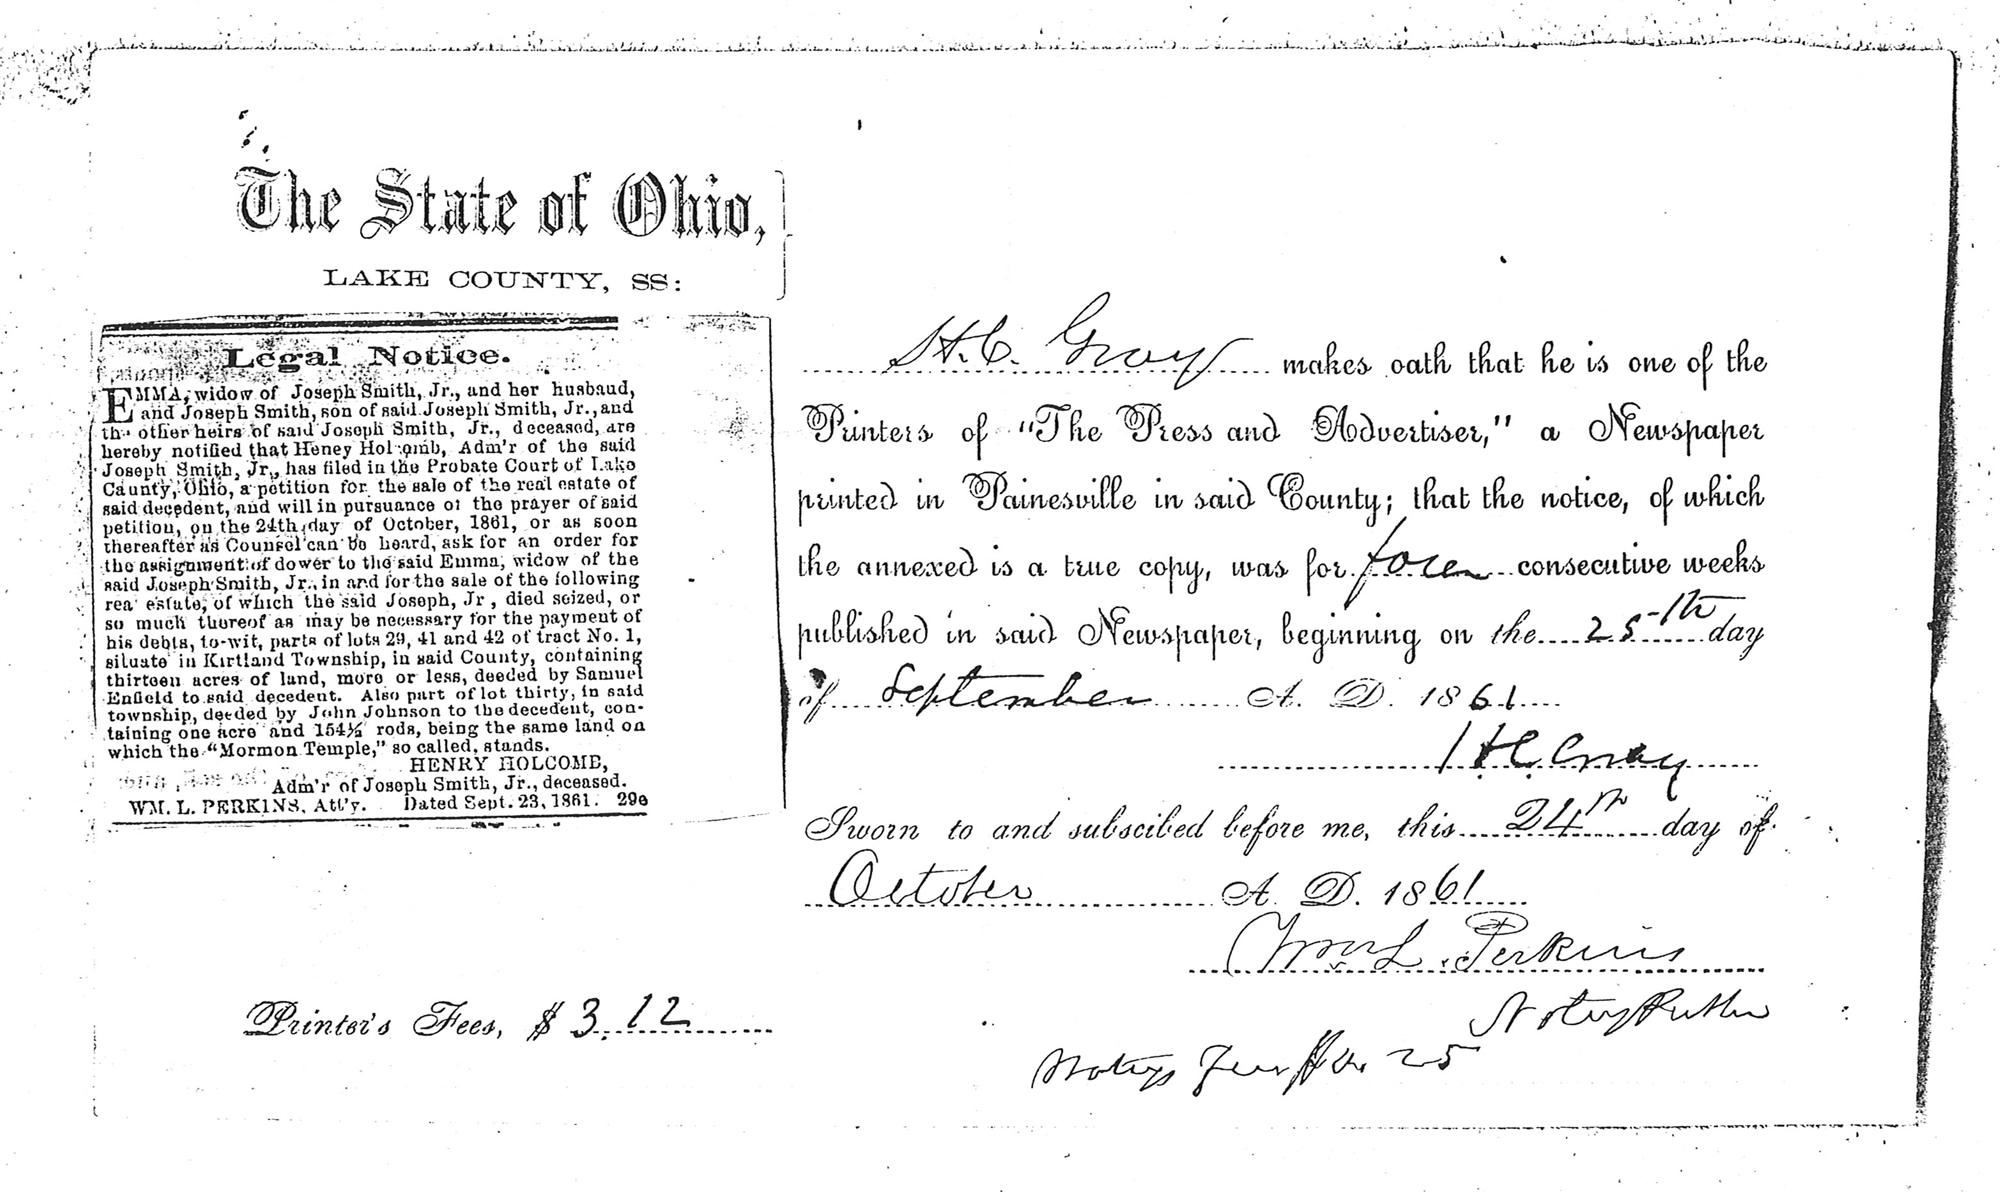 The State of Ohio,
LAKE COUNTY, SS:
Legal Notice.
EMMA, widow of Joseph Smith, Jr., and her husbaud,
and Joseph Smith, son of said Joseph Smith, Jr., and
the other heirs of said Joseph Smith, Jr., deceased, are
hereby notified that Heney Holcomb, Adm'r of the said
Joseph Smith, Jr., has filed in the Probate Court of Lake
Caunty, Ohio, a petition for the sale of the real estate of
said decedent, and will in pursuance of the prayer of said
petition, on the 24th day of October, 1861, or as soon
thereafter as Counsel can be heard, ask for an order for
the assignment of dower to the said Emma, widow of the
said Joseph Smith, Jr., in and for the sale of the following
rea estate, of which the said Joseph, Jr, died seized, or
so much thereof as may be necessary for the payment of
his debts, to-wit, parts of lots 29, 41 and 42 of tract No. 1,
situate in Kirtland Township, in said County, containing
thirteen acres of land, more or less, deeded by Samuel
Enfield to said decedent. Also part of lot thirty, in said
township, deeded by John Johnson to the decedent, con-
taining one acre and 154½ rods, being the same land on
which the "Mormon Temple," so called, stands.
HENRY HOLCOMB,
Adm'r of Joseph Smith, Jr., deceased.
WM. L. PERKINS, Att'y. Dated Sept. 23, 1861. 29e
Printer's Fees, $ 3.12
H. C. Gray makes oath that he is one of the
Printers of "The Press and Advertiser," a Newspaper
printed in Painesville in said County; that the notice, of which
the annexed is a true copy, was for four consecutive weeks
published in said Newspaper, beginning on the 25th day
of September A. D. 1861
H C Gray
Sworn to and subscibed before me, this 24th day of
October A. D. 1861
Wm L. Perkins
Notary Public
Notarys Fees $0. 25